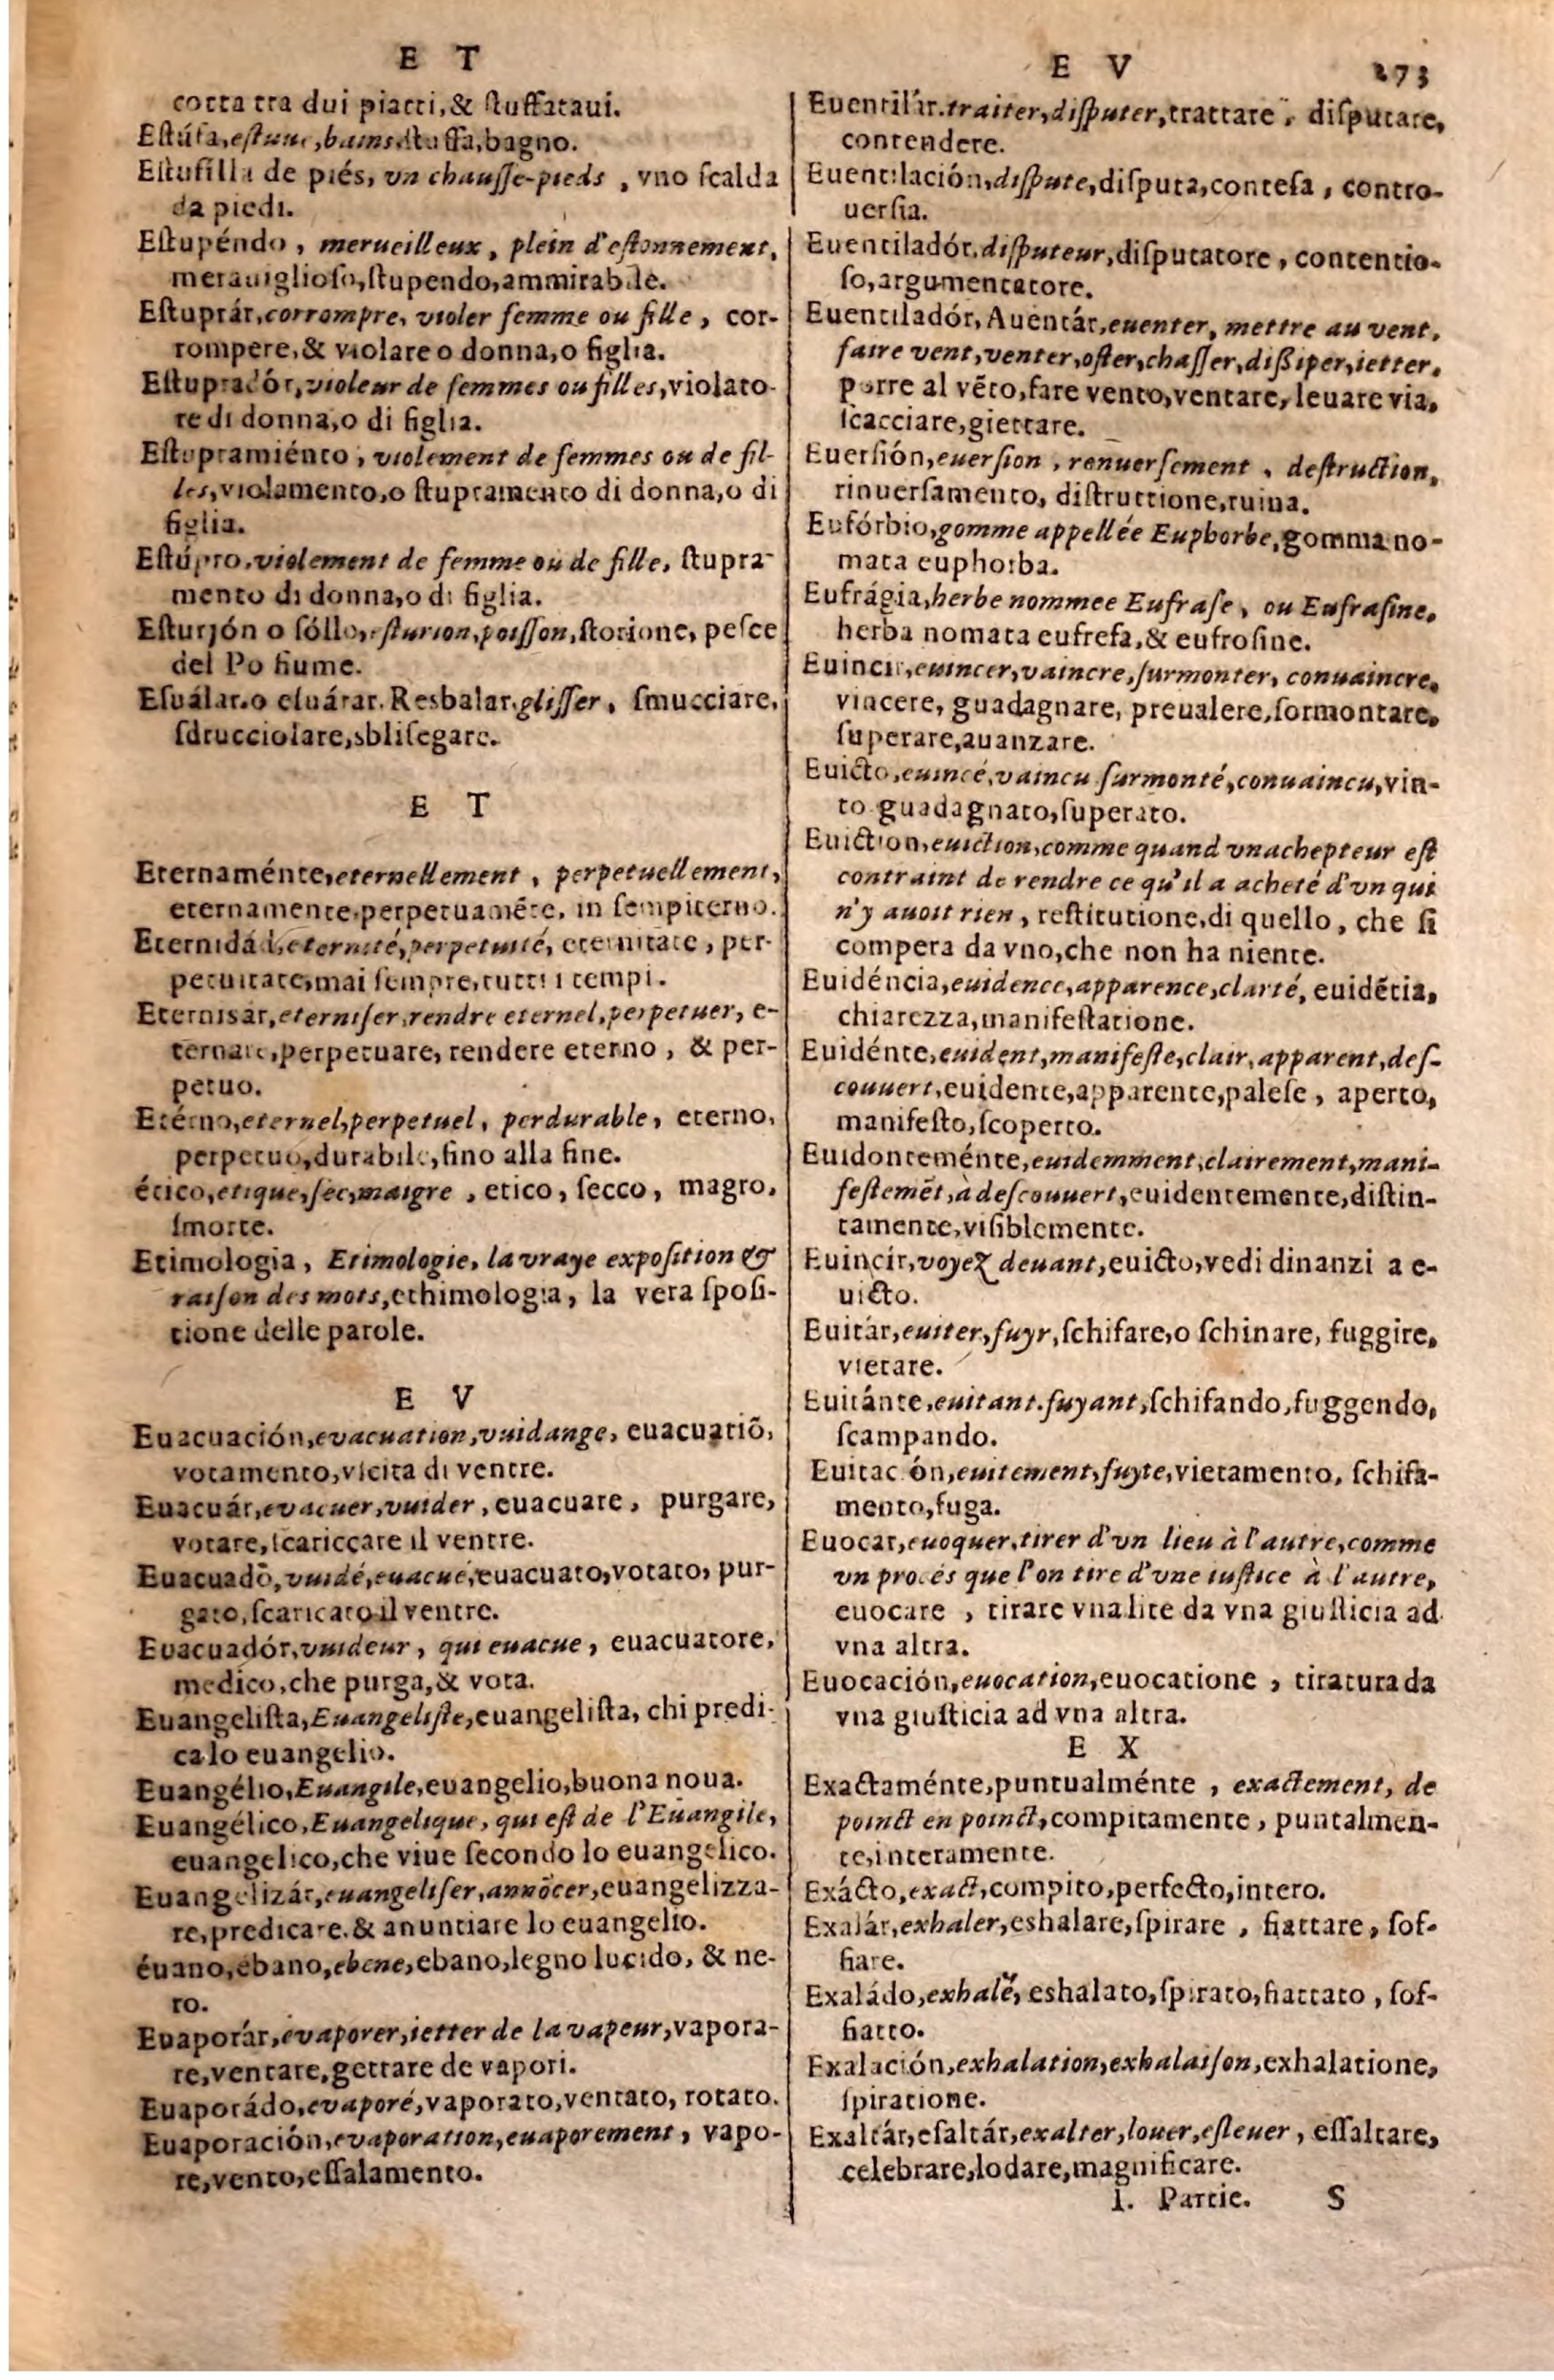 E T
cotta tra dui piatti,& ſtuffataui.
Eſtúfa,eſtuue,bains.ſtuffa,bagno.
Eſtufilla de piés, vn chauſſe-pieds , vno ſcalda
da piedi.
Eſtupéndo , merueilleux , plein d'eſtonnement,
merauiglioſo,ſtupendo,ammirabile.
Eſtuprár,corrompre, violer femme ou fille , cor-
rompere,& violare o donna,o figlia.
Eſtupradór,violeur de femmes ou filles,violato-
re di donna,o di figlia.
Eſtupramiénto , violement de femmes ou de fil-
les,violamento,o ſtupramento di donna,o di
figlia.
Eſtúpro,violement de femme ou de fille, ſtupra-
mento di donna,o di figlia.
Eſturjón o ſóllo,eſturion,poiſſon,ſtorione, peſce
del Po fiume.
Eſuálar.o eſuárar. Resbalar.gliſſer , ſmucciare,
ſdrucciolare,sbliſegare.
E T
Eternaménte,eternellement , perpetuellement,
eternamente,perpetuamẽte, in ſempiterno.
Eternidád,eternité,perpetuité, eternitate , per-
petuitate,mai ſempre,tutti i tempi.
Eternisár,eterniſer,rendre eternel,perpetuer, e-
ternare,perpetuare, rendere eterno , & per-
petuo.
Etérno,eternel,perpetuel , perdurable , eterno,
perpetuo,durabile,fino alla fine.
ético,etique,ſec,maigre , etico , ſecco , magro,
ſmorte.
Etimologia , Etimologie, la vraye expoſition &
raiſon des mots,ethimologia , la vera ſpoſi-
tione delle parole.
E V
Euacuación,evacuation,vuidange, euacuatiõ,
votamento,vſcita di ventre.
Euacuár,evacuer,vuider , euacuare , purgare,
votare,ſcariccare il ventre.
Euacuadõ,vuidé,euacué,euacuato,votato, pur-
gato,ſcaricato il ventre.
Euacuadór,vuideur , qui euacue , euacuatore,
medico,che purga,& vota.
Euangeliſta,Euangeliſte,euangeliſta, chi predi-
ca lo euangelio.
Euangélio,Euangile,euangelio,buona noua.
Euangélico,Euangelique, qui eſt de l'Euangile,
euangelico,che viue ſecondo lo euangelico.
Euangelizár,euangeliſer,annõcer,euangelizza-
re,predicare.& anuntiare lo euangelio.
éuano,ébano,ebene,ebano,legno lucido, & ne-
ro.
Euaporár,évaporer,ietter de la vapeur,vapora-
re,ventare,gettare de vapori.
Euaporádo,evaporé,vaporato,ventato, rotato.
Euaporación,evaporation,euaporement , vapo-
re,vento,eſſalamento.
E V
273
Euentilár.traiter,diſputer,trattare , diſputare,
contendere.
Euentilación,diſpute,diſputa,conteſa , contro-
uerſia.
Euentiladór,diſputeur,diſputatore , contentio-
ſo,argumentatore.
Euentiladór, Auentár,euenter, mettre au vent,
faire vent,venter,oſter,chaſſer,diſsiper,ietter.
porre al vẽto,fare vento,ventare, leuare via,
ſcacciare,giettare.
Euerſión,euerſion , renuerſement , deſtruction,
rinuerſamento, diſtruttione,ruina.
Eufórbio,gomme appellée Euphorbe,gomma no-
mata euphorba.
Eufrágia,herbe nommee Eufraſe , ou Eufraſine,
herba nomata eufreſa,& eufroſine.
Euincir,euincer,vaincre,ſurmonter, conuaincre,
vincere, guadagnare, preualere,ſormontare,
ſuperare,auanzare.
Euicto,euincé,vaincu ſurmonté,conuaincu,vin-
to guadagnato,ſuperato.
Euiction,euiction,comme quand vn achepteur eſt
contraint de rendre ce qu'il a acheté d'vn qui
n'y auoit rien , reſtitutione,di quello , che ſi
compera da vno,che non ha niente.
Euidéncia,euidence,apparence,clarté, euidẽtia,
chiarezza,manifeſtatione.
Euidénte,euident,manifeſte,clair,apparent,deſ-
couuert,euidente,apparente,paleſe , aperto,
manifeſto,ſcoperto.
Euidonteménte,euidemment,clairement,mani-
feſtemẽt,à deſcouuert,euidentemente,diſtin-
tamente,viſiblemente.
Euincir,voyez deuant,euicto,vedi dinanzi a e-
uicto.
Euitár,euiter,fuyr,ſchifare,o ſchinare, fuggire,
vietare.
Euitánte,euitant.fuyant,ſchifando,fuggendo,
ſcampando.
Euitación,euitement,fuyte,vietamento, ſchifa-
mento,fuga.
Euocar,euoquer,tirer d'vn lieu à l'autre,comme
vn procés que l'on tire d'vne iuſtice à l'autre,
euocare , tirare vna lite da vna giuſticia ad
vna altra.
Euocación,euocation,euocatione , tiratura da
vna giuſticia ad vna altra.
E X
Exactaménte,puntualménte , exactement, de
poinct en poinct,compitamente , puntalmen-
te,interamente.
Exácto,exact,compito,perfecto,intero.
Exalár,exhaler,eshalare,ſpirare , fiattare , ſof-
fiare.
Exaládo,exhalé, eshalato,ſpirato,fiattato , ſof-
fiatto.
Exalación,exhalation,exhalaiſon,exhalatione,
ſpiratione.
Exaltár,eſaltár,exalter,louer,eſleuer , eſſaltare,
celebrare,lodare,magnificare.
I. Partie. S